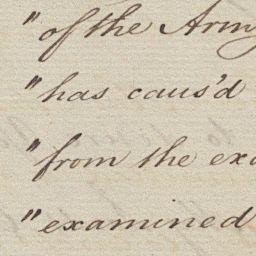 "of the Army
"has caus'd
"from the exa
"examined